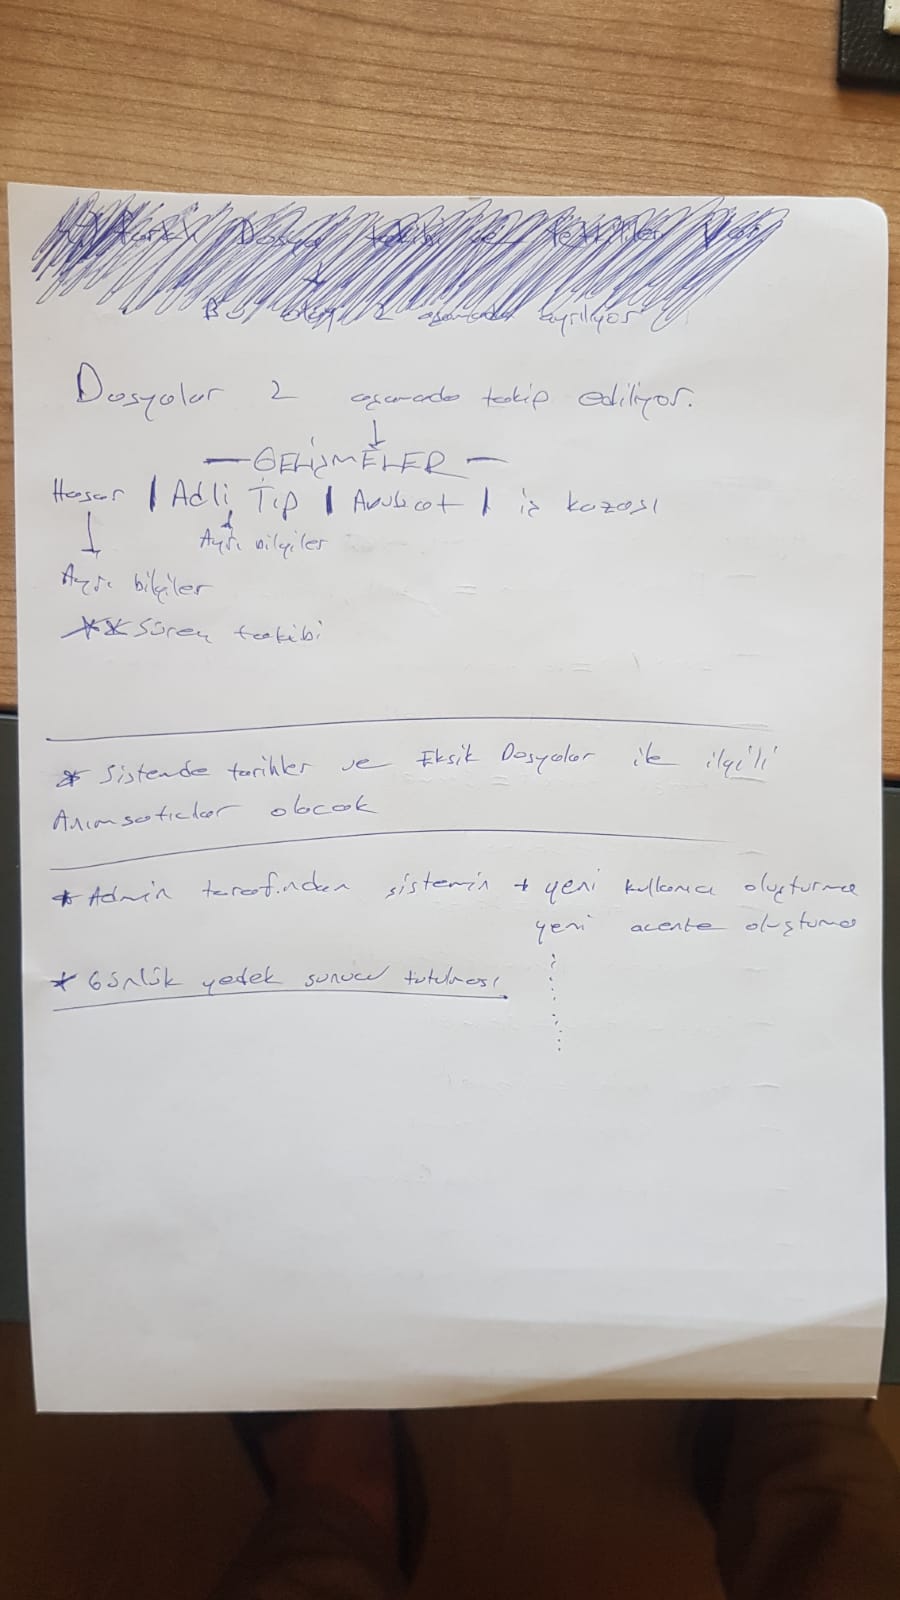 Dosya takibi
2 aşamada ayrılıyor
Dosyalar 2 aşamada takip ediliyor.
— GELİŞMELER —
Hasar | Adli Tıp | Avukat | iş kazası
Ayrı bilgiler
Ayrı bilgiler
** Süreç takibi
* Sistemde tarihler ve Eksik Dosyalar ile ilgili
Anımsatıcılar olacak
* Admin tarafından sistemin + yeni kullanıcı oluşturma
yeni acente oluşturma
* Günlük yedek sunucu tutulması